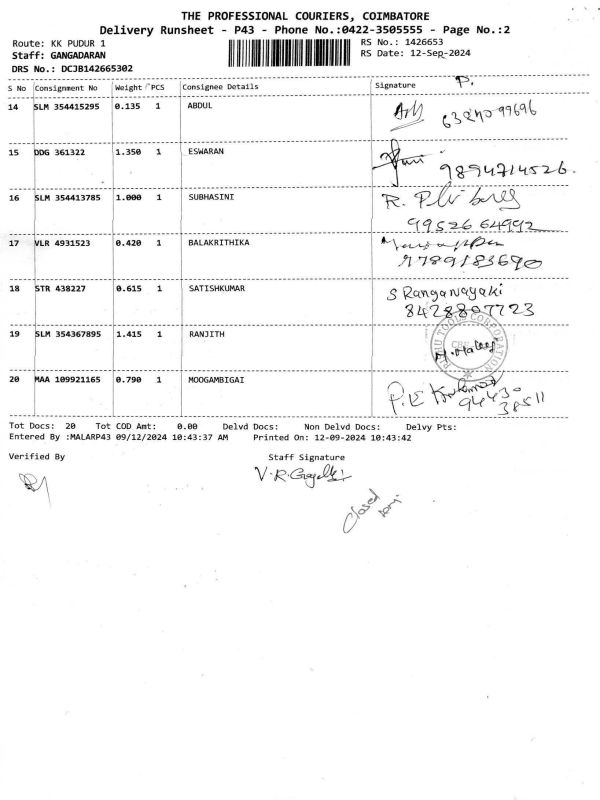 THE PROFESSIONAL COURIERS, COIMBATORE
Delivery Runsheet - P43 - Phone No.:0422-3505555 - Page No.:2
Route: KK PUDUR 1 RS No.: 1426653
Staff: GANGADARAN RS Date: 12-Sep-2024
DRS No.: DCJB142665302
S No Consignment No Weight PCS Consignee Details Signature P.
14 SLM 354415295 0.135 1 ABDUL
15 DDG 361322 1.350 1 ESWARAN
9894714526.
16 SLM 354413785 1.000 1 SUBHASINI R.
9952664992
17 VLR 4931523 0.420 1 BALAKRITHIKA
7789183690
18 STR 438227 0.615 1 SATISHKUMAR S Ranganayaki
8428807723
19 SLM 354367895 1.415 1 RANJITH
TOOLS CORPORATION
20 MAA 109921165 0.790 1 MOOGAMBIGAI
94430
38511
Tot Docs: 20 Tot COD Amt: 0.00 Delvd Docs: Non Delvd Docs: Delvy Pts:
Entered By :MALARP43 09/12/2024 10:43:37 AM Printed On: 12-09-2024 10:43:42
Verified By Staff Signature
V.R.
Closed